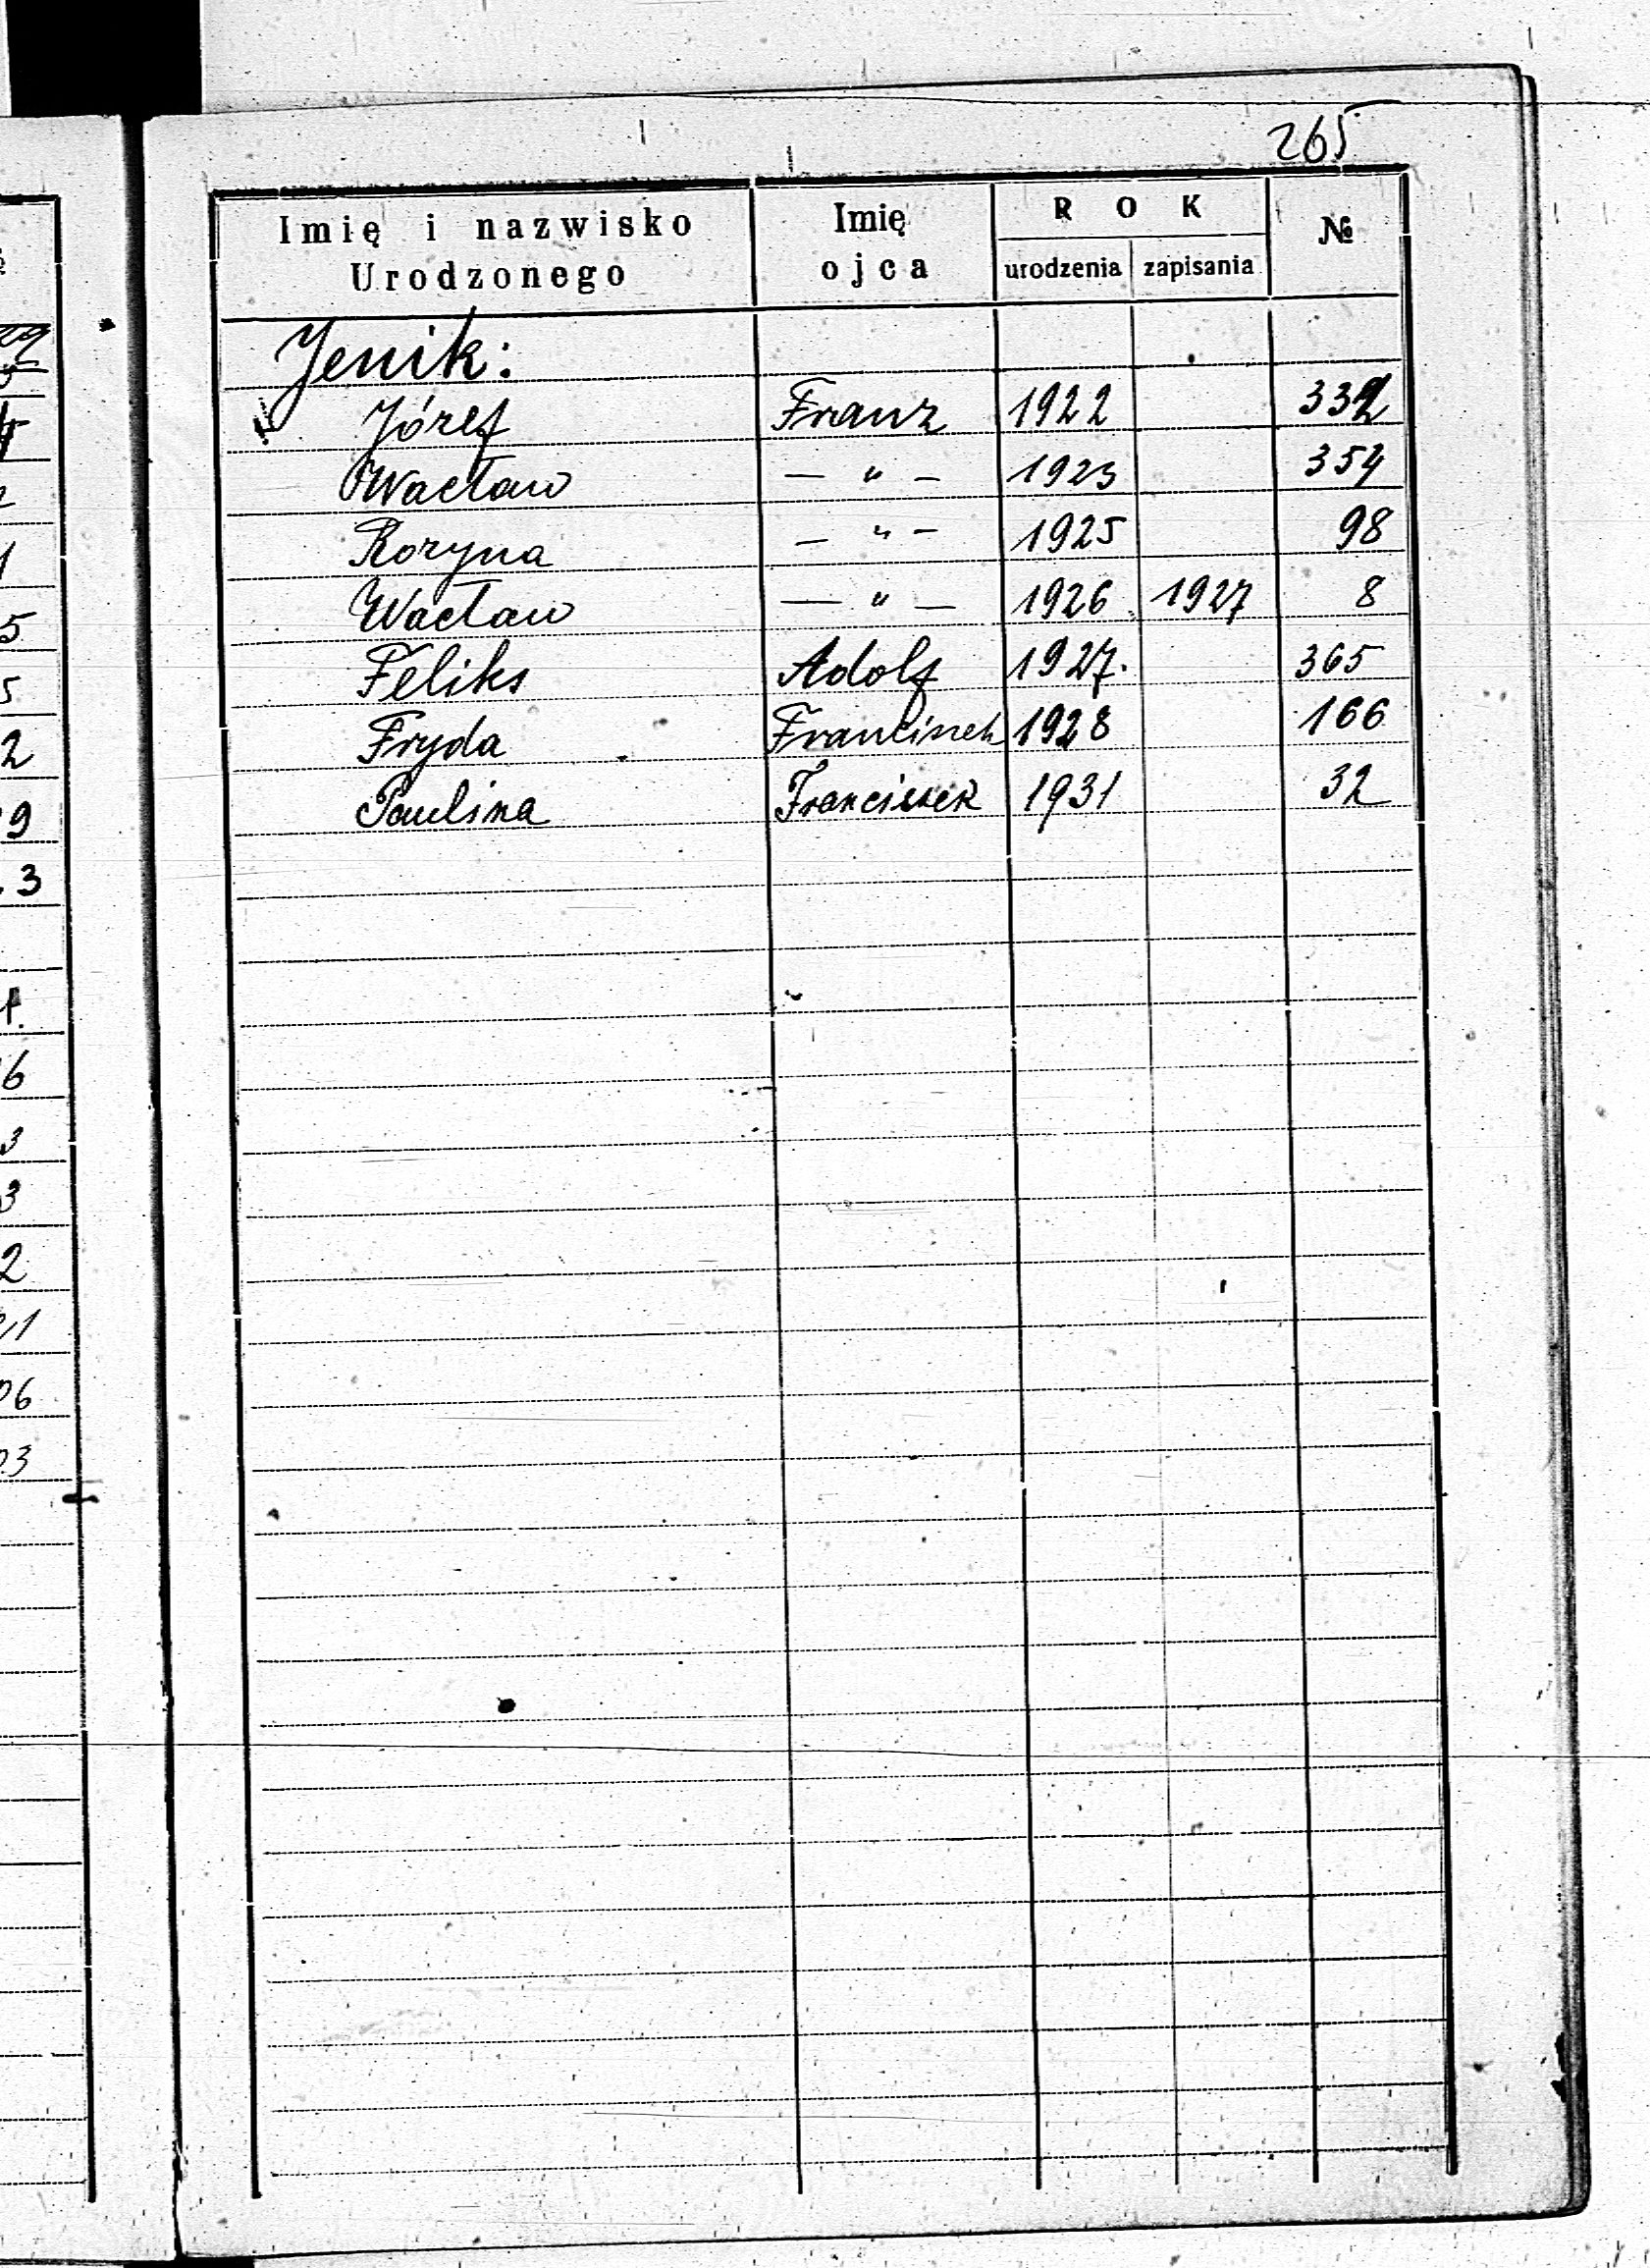 265
Imię i nazwisko Urodzonego | Imię ojca | ROK urodzenia | zapisania | №
Jenik:
Józef Franz 1922 332
Wacław — " — 1923 354
Rozyna — " — 1925 98
Wacław — " — 1926 1927 8
Feliks Adolf 1927. 365
Fryda Franciszek 1928 166
Paulina Franciszek 1931 32
5
2
9
3
6
3
3
2